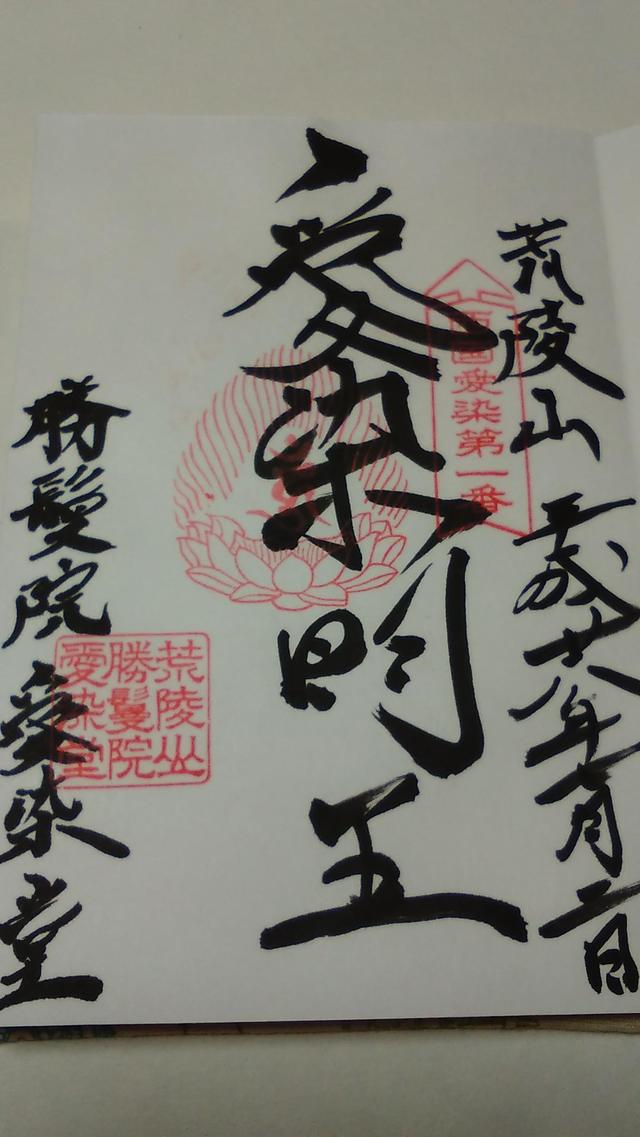 荒陵山 平成廿八年一月二日
西國愛染第一番
愛染明王
勝鬘院 愛染堂
荒陵山
勝鬘院
愛染堂